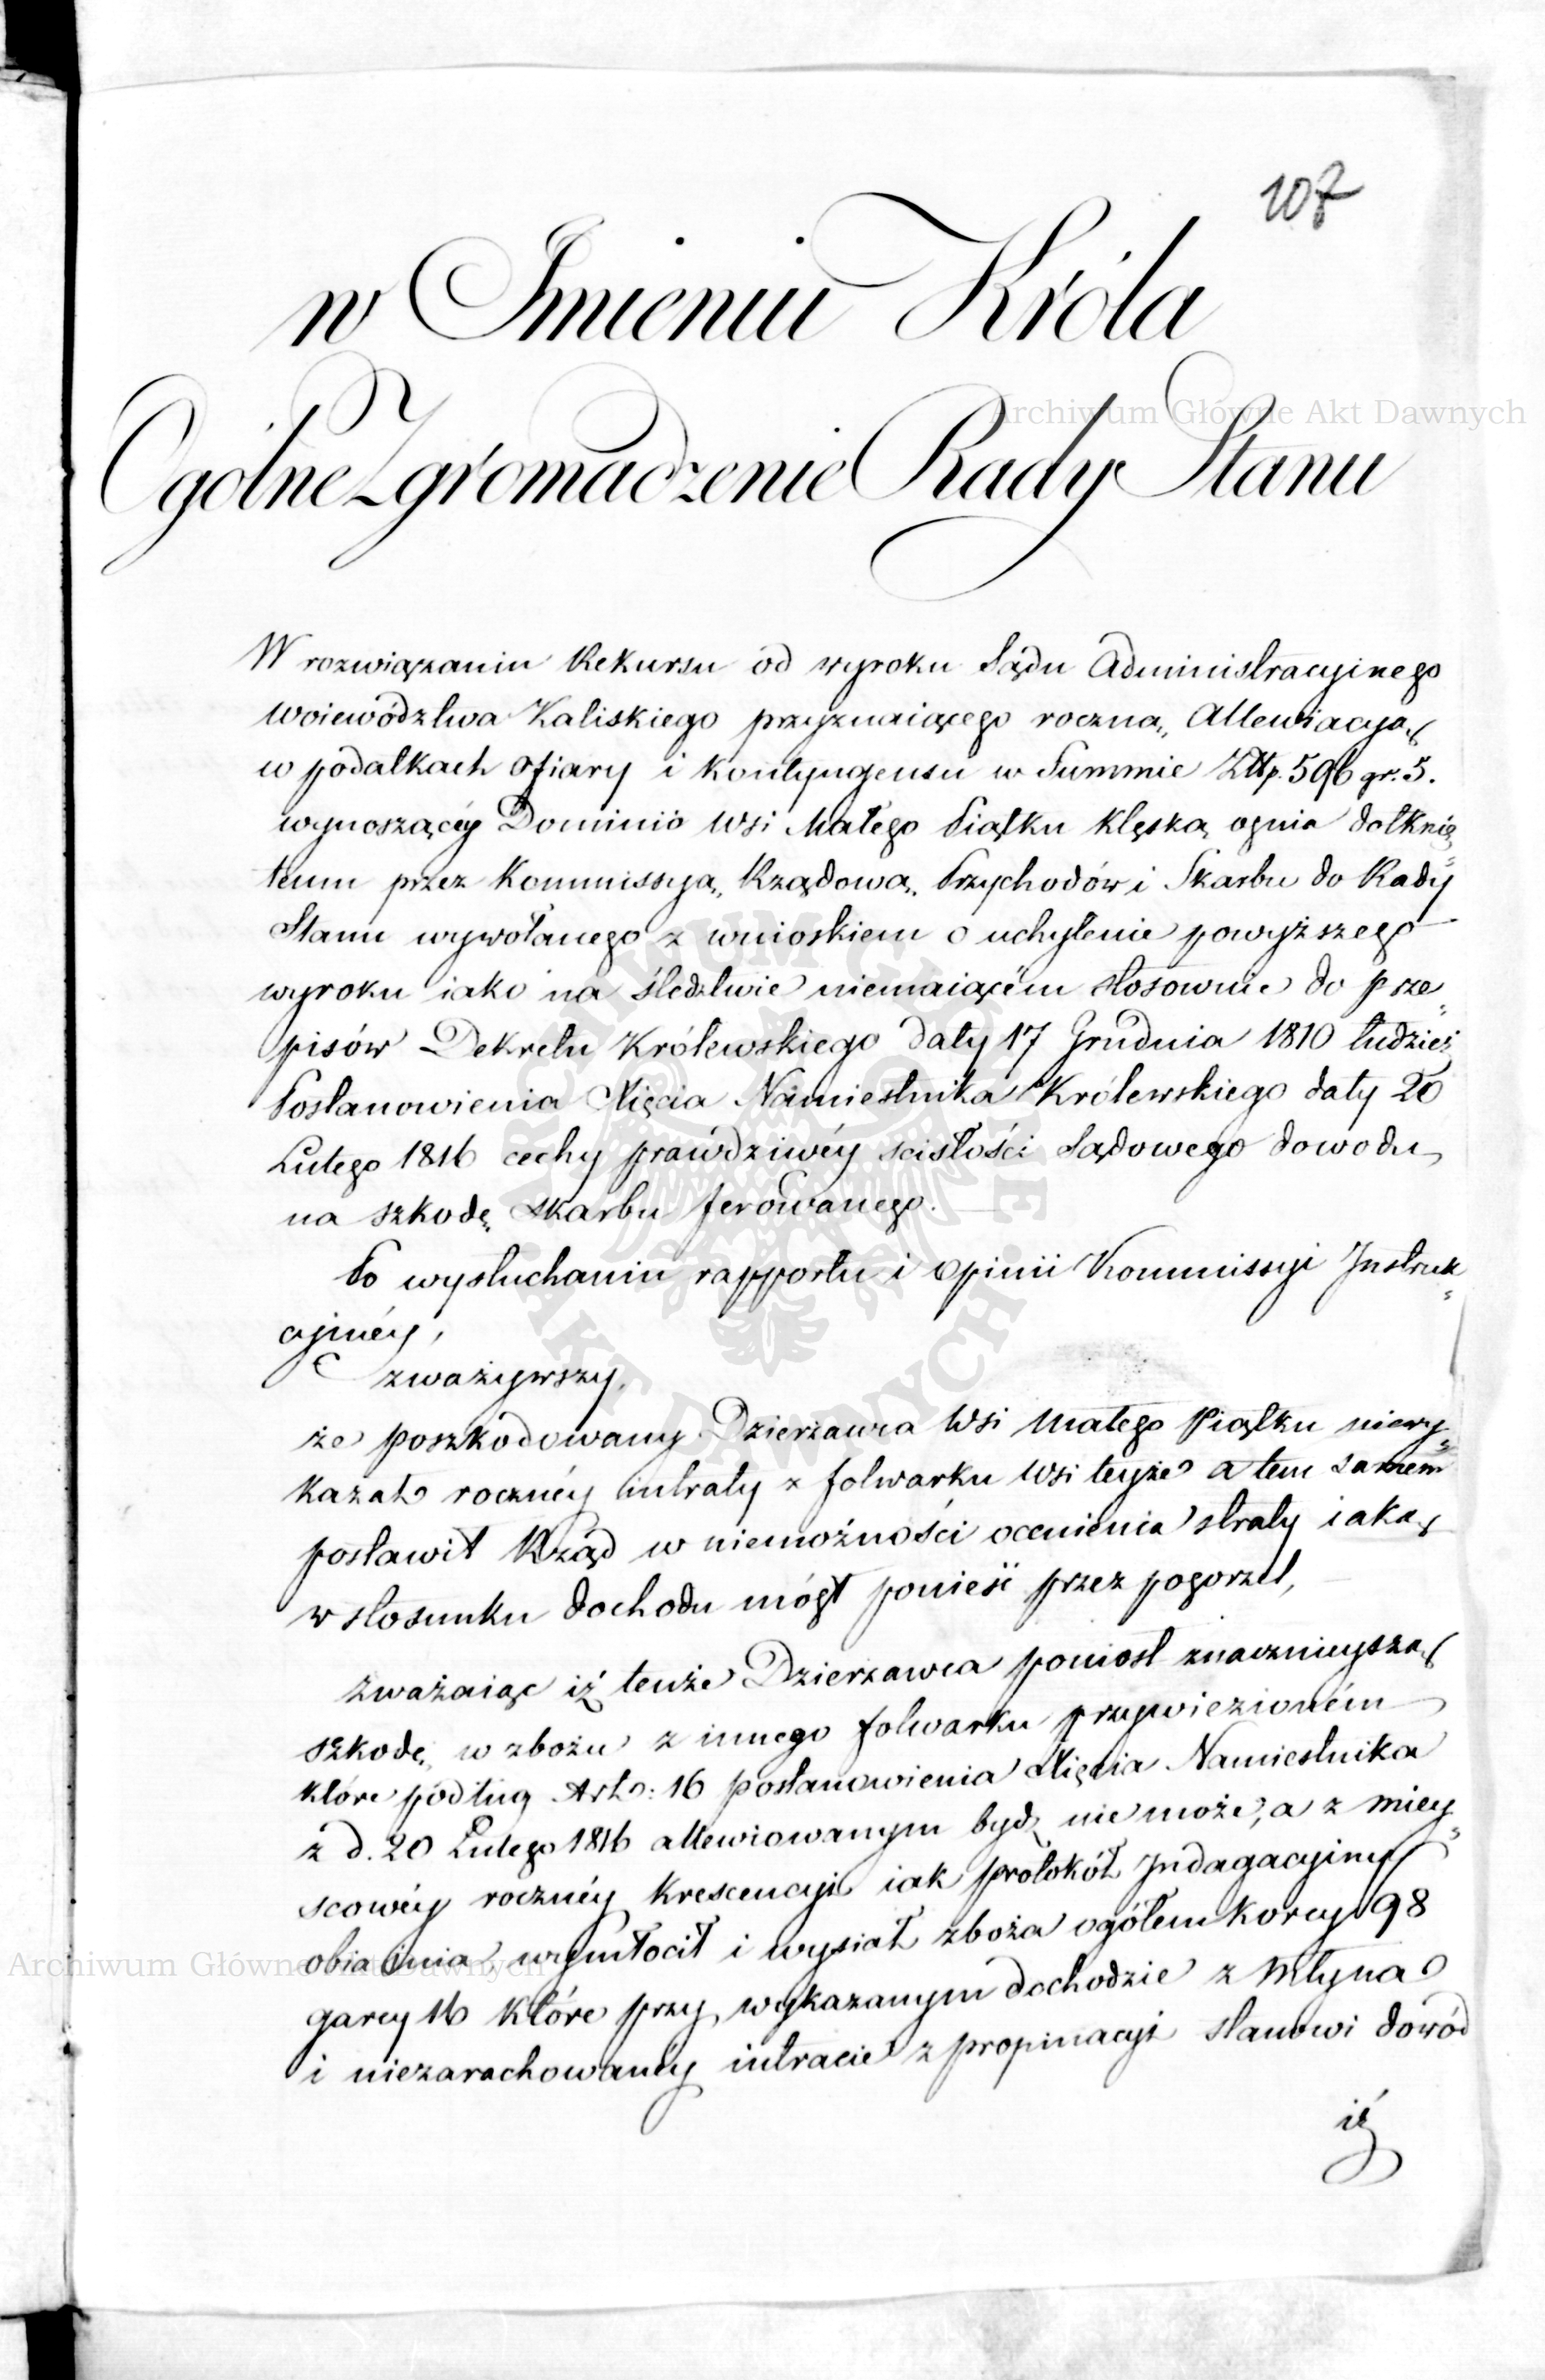 107
w Imieniu Króla
Ogólne Zgromadzenie Rady Stanu
W rozwiązaniu Rekursu od wyroku Sądu Administracyinego
Woiewództwa Kaliskiego przyznaiącego roczną Allewiacyą
w podatkach ofiary i kontyngensu w Summie Złłp. 596 gr. 5.
wynoszącéy Dominio Wsi Małego Piątku klęską ognia dotknię„
tem przez Kommissyą Rządową Przychodów i Skarbu do Rady
Stanu wywołanego z wnioskiem o uchylenie powyższego
wyroku iako na śledztwie niemaiącém stosownie do prze„
pisów Dekretu Królewskiego daty 17 Grudnia 1810 tudzież
Postanowienia Xięcia Namiestnika Królewskiego daty 20
Lutego 1816 cechy prawdziwéy scisłości Sądowego dowodu
na szkodę skarbu ferowanego.
Po wysłuchaniu rapportu i opinii Kommissyi Instruk„
cyinéy,
zważywszy,
że poszkodowany Dzierżawca Wsi Małego Piątku niewy„
kazał rocznéy intraty z folwarku Wsi teyże a tem samem
postawił Rząd w niemożności ocenienia straty iaką
w stosunku dochodu mógł ponieść przez pogorzel,
zważaiąc iż tenże Dzierżawca poniosł znacznieyszą
szkodę w zbożu z innego folwarku przywiezioném
które podług Arto: 16 postanowienia Xięcia Namiestnika
z d. 20 Lutego 1816 allewiowanym bydź nie może, a z miey„
scowéy rocznéy krescencyi iak protokół Indagacyiny
obiaśnia, wymłócił i wysiał zboża ogółem korcy 98
garcy 16 które przy wykazanym dochodzie z młyna
i niezarachowanéy intracie z propinacyi stanowi dowód
iż
Archiwum Główne Akt Dawnych
Archiwum Główne Akt Dawnych
ARCHIWUM GŁÓWNE AKT DAWNYCH